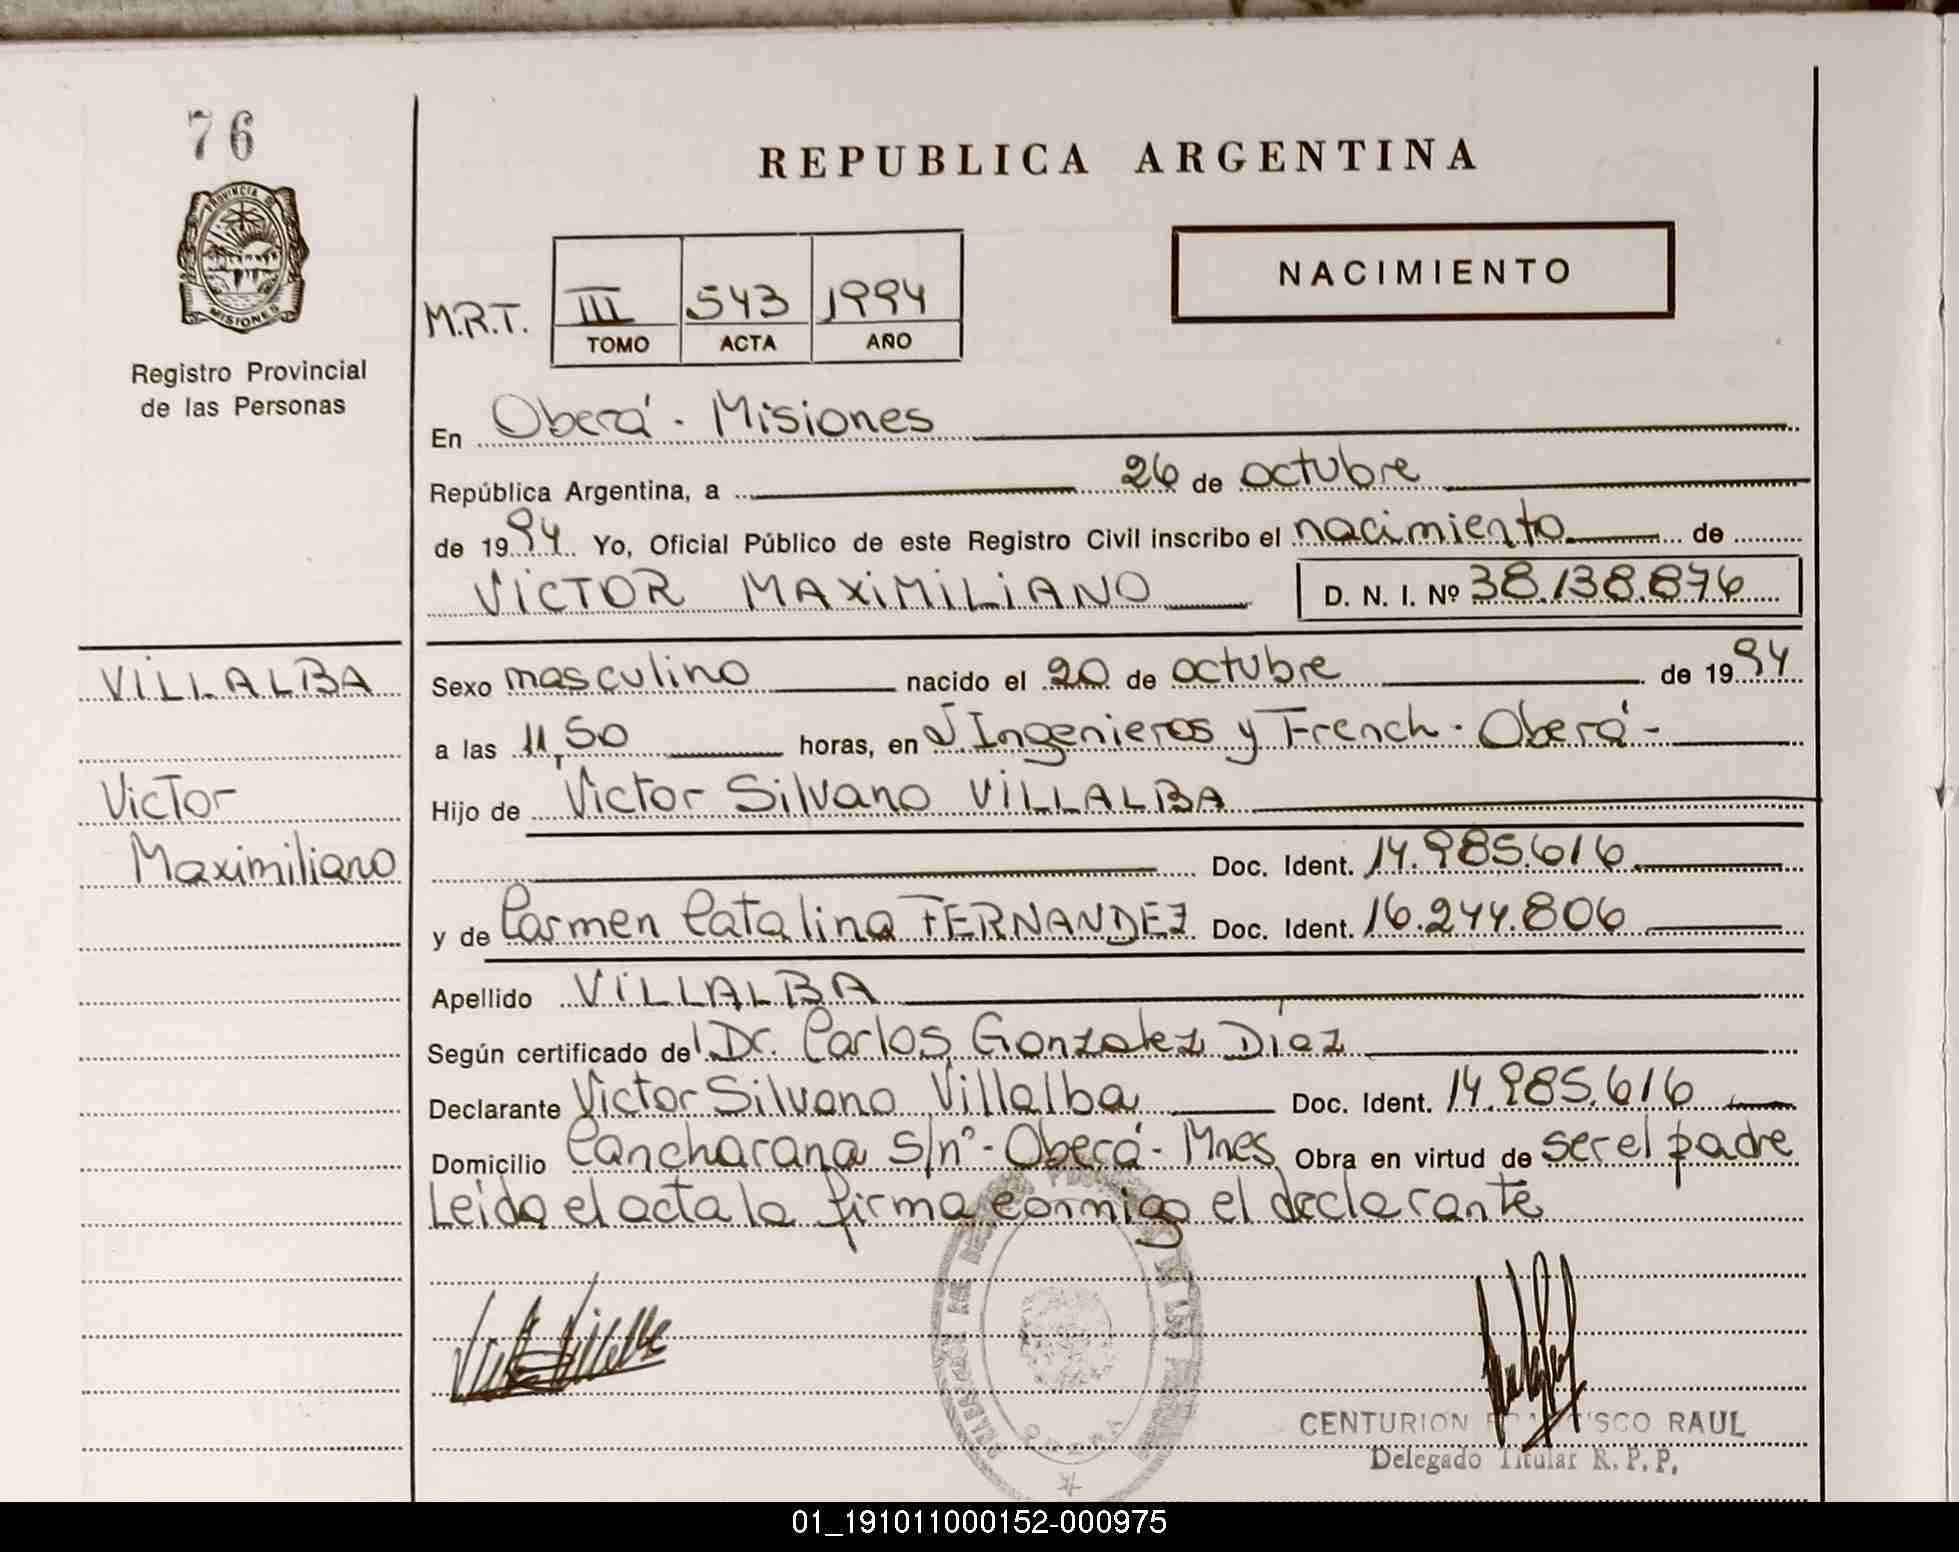 76
PROVINCIA DE
MISIONES
Registro Provincial
de las Personas
REPUBLICA ARGENTINA
NACIMIENTO
M.R.T. III 543 1994
TOMO ACTA AÑO
En Oberá - Misiones
República Argentina, a 26 de octubre
de 1994 Yo, Oficial Público de este Registro Civil inscribo el nacimiento de
VICTOR MAXIMILIANO D. N. I. Nº 38.138.876
VILLALBA
Victor
Maximiliano
Sexo masculino nacido el 20 de octubre de 1994
a las 11,50 horas, en Ingenieros y French - Oberá -
Hijo de Victor Silvano VILLALBA
Doc. Ident. 14.985.616
y de Carmen Catalina FERNANDEZ Doc. Ident. 16.244.806
Apellido VILLALBA
Según certificado del Dr. Carlos Gonzalez Díaz
Declarante Victor Silvano Villalba Doc. Ident. 14.985.616
Domicilio Cancharana s/nº - Oberá - Mnes Obra en virtud de ser el padre
Leida el acta la firma conmigo el declarante
OBERA
CENTURION FRANCISCO RAUL
Delegado Titular R. P. P.
01_191011000152-000975